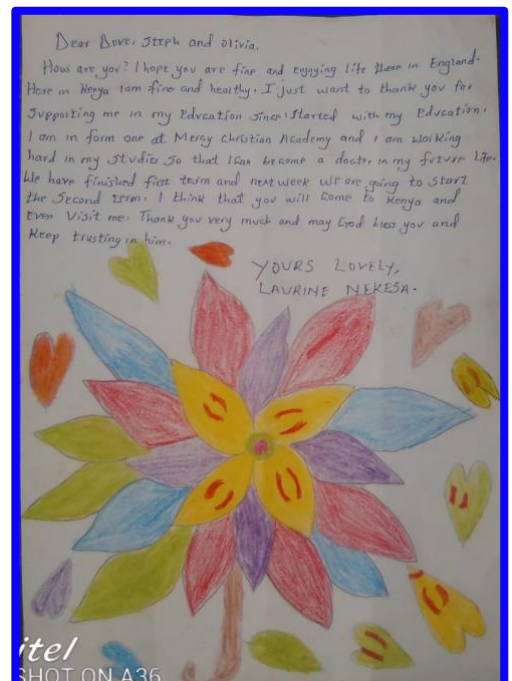 Dear Dave, Steph and Olivia,
How are you? I hope you are fine and enjoying life there in England.
Here in Kenya I am fine and healthy. I just want to thank you for
supporting me in my Education since I started with my Education.
I am in form one at Mercy Christian Academy and I am working
hard in my studies so that I can become a doctor in my future life.
We have finished first term and next week we are going to start
the second term. I think that you will come to Kenya and
Even visit me. Thank you very much and may God bless you and
Keep trusting in him.
YOURS LOVELY,
LAURINE NEKESA.
itel
SHOT ON A36